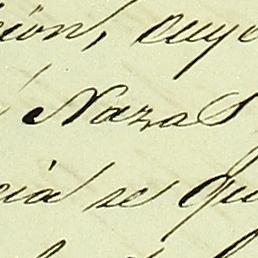 ción, cuyo
Naza S
cia se qu